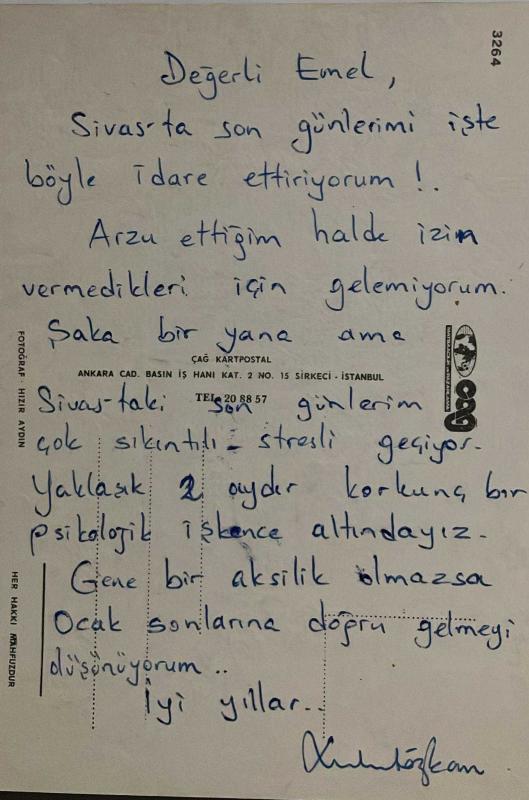 3264
Değerli Emel,
Sivas-ta son günlerimi işte
böyle idare ettiriyorum !..
Arzu ettiğim halde izin
vermedikleri için gelemiyorum.
Şaka bir yana ama
ÇAĞ KARTPOSTAL
ANKARA CAD. BASIN İŞ HANI KAT. 2 NO. 15 SİRKECİ - İSTANBUL
TEL. 20 88 57
Sivas-taki son günlerim
çok sıkıntılı - stresli geçiyor.
Yaklaşık 2 aydır korkunç bir
psikolojik işkence altındayız.
Gene bir aksilik olmazsa
Ocak sonlarına doğru gelmeyi
düşünüyorum ..
İyi yıllar..
FOTOĞRAF HIZIR AYDIN
HER HAKKI MAHFUZDUR